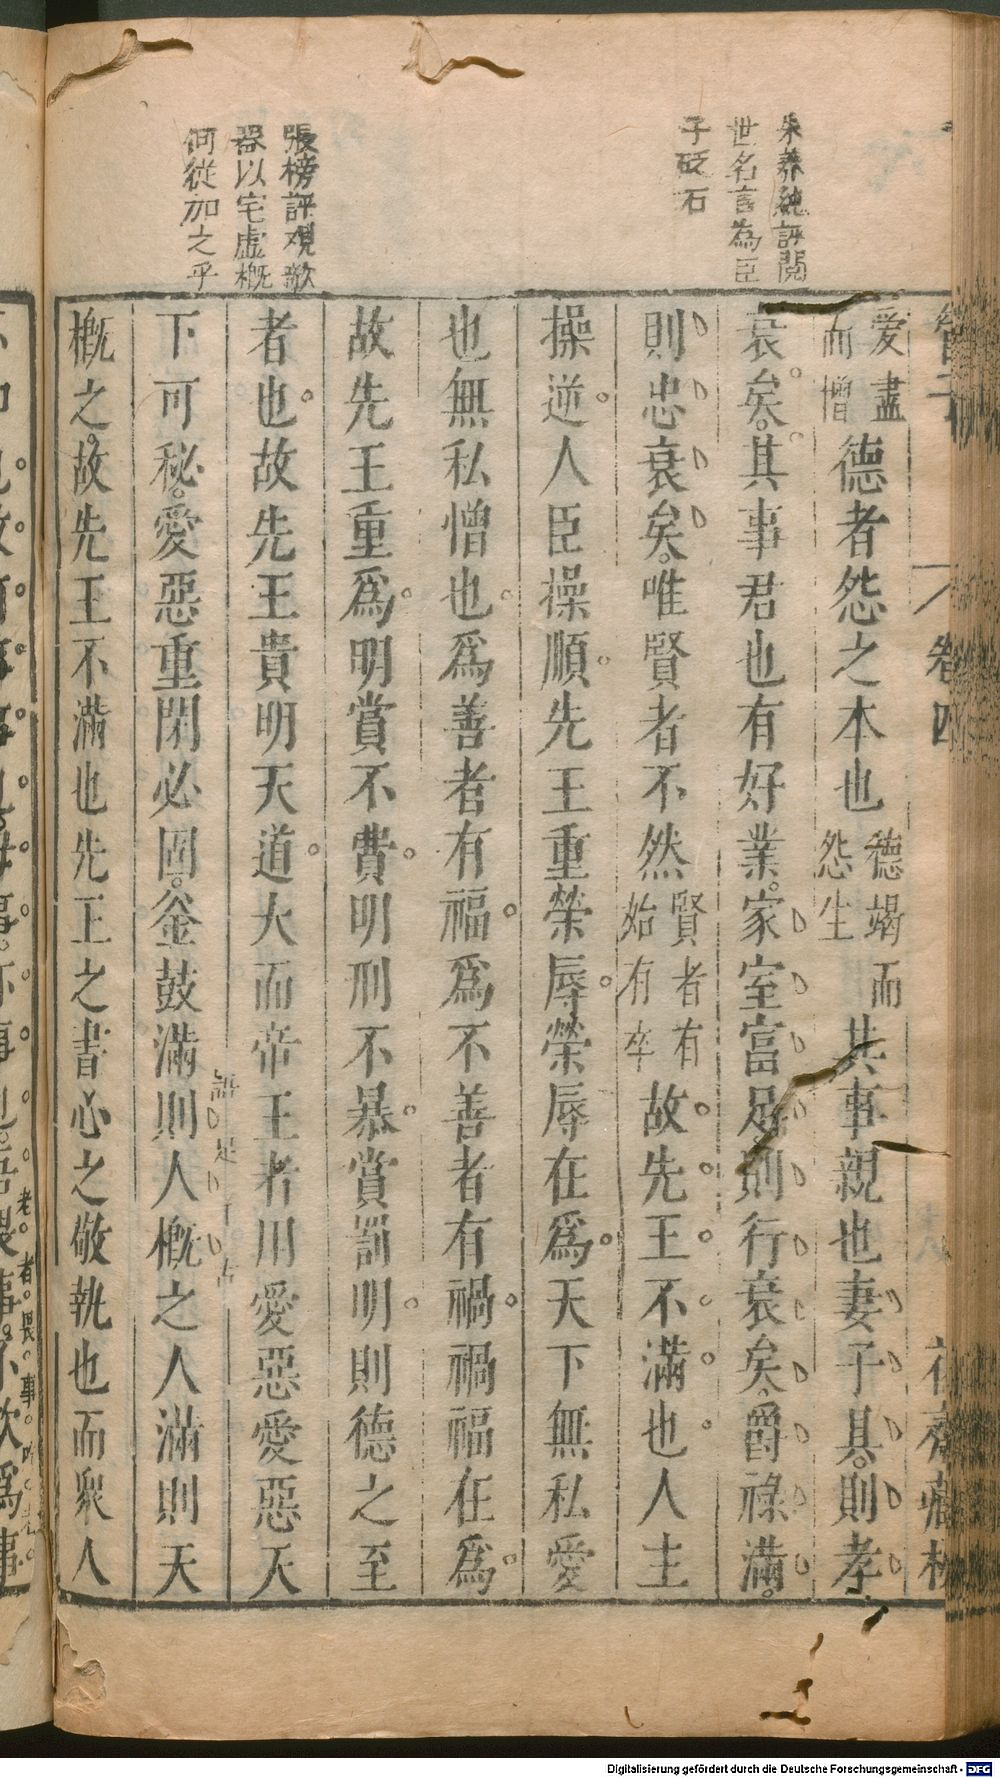 朱養純評閱
世名言為臣
子砭石
張榜評觀欹
器以宅虛概
何從加之乎
卷四
愛盡而憎德者怨之本也德竭而怨生其事親也妻子具則孝
衰矣其事君也有好業家室富足則行衰矣爵祿滿
則忠衰矣唯賢者不然賢者有始有卒故先王不滿也人主
操逆人臣操順先王重榮辱榮辱在爲天下無私愛
也無私憎也爲善者有福爲不善者有禍禍福在爲
故先王重爲明賞不費明刑不暴賞罰明則德之至
者也故先王貴明天道大而帝王者用愛惡愛惡天
下可秘愛惡重閉必固釜鼓滿則人概之人滿則天
概之故先王不滿也先王之書心之敬執也而衆人
Digitalisierung gefördert durch die Deutsche Forschungsgemeinschaft - DFG